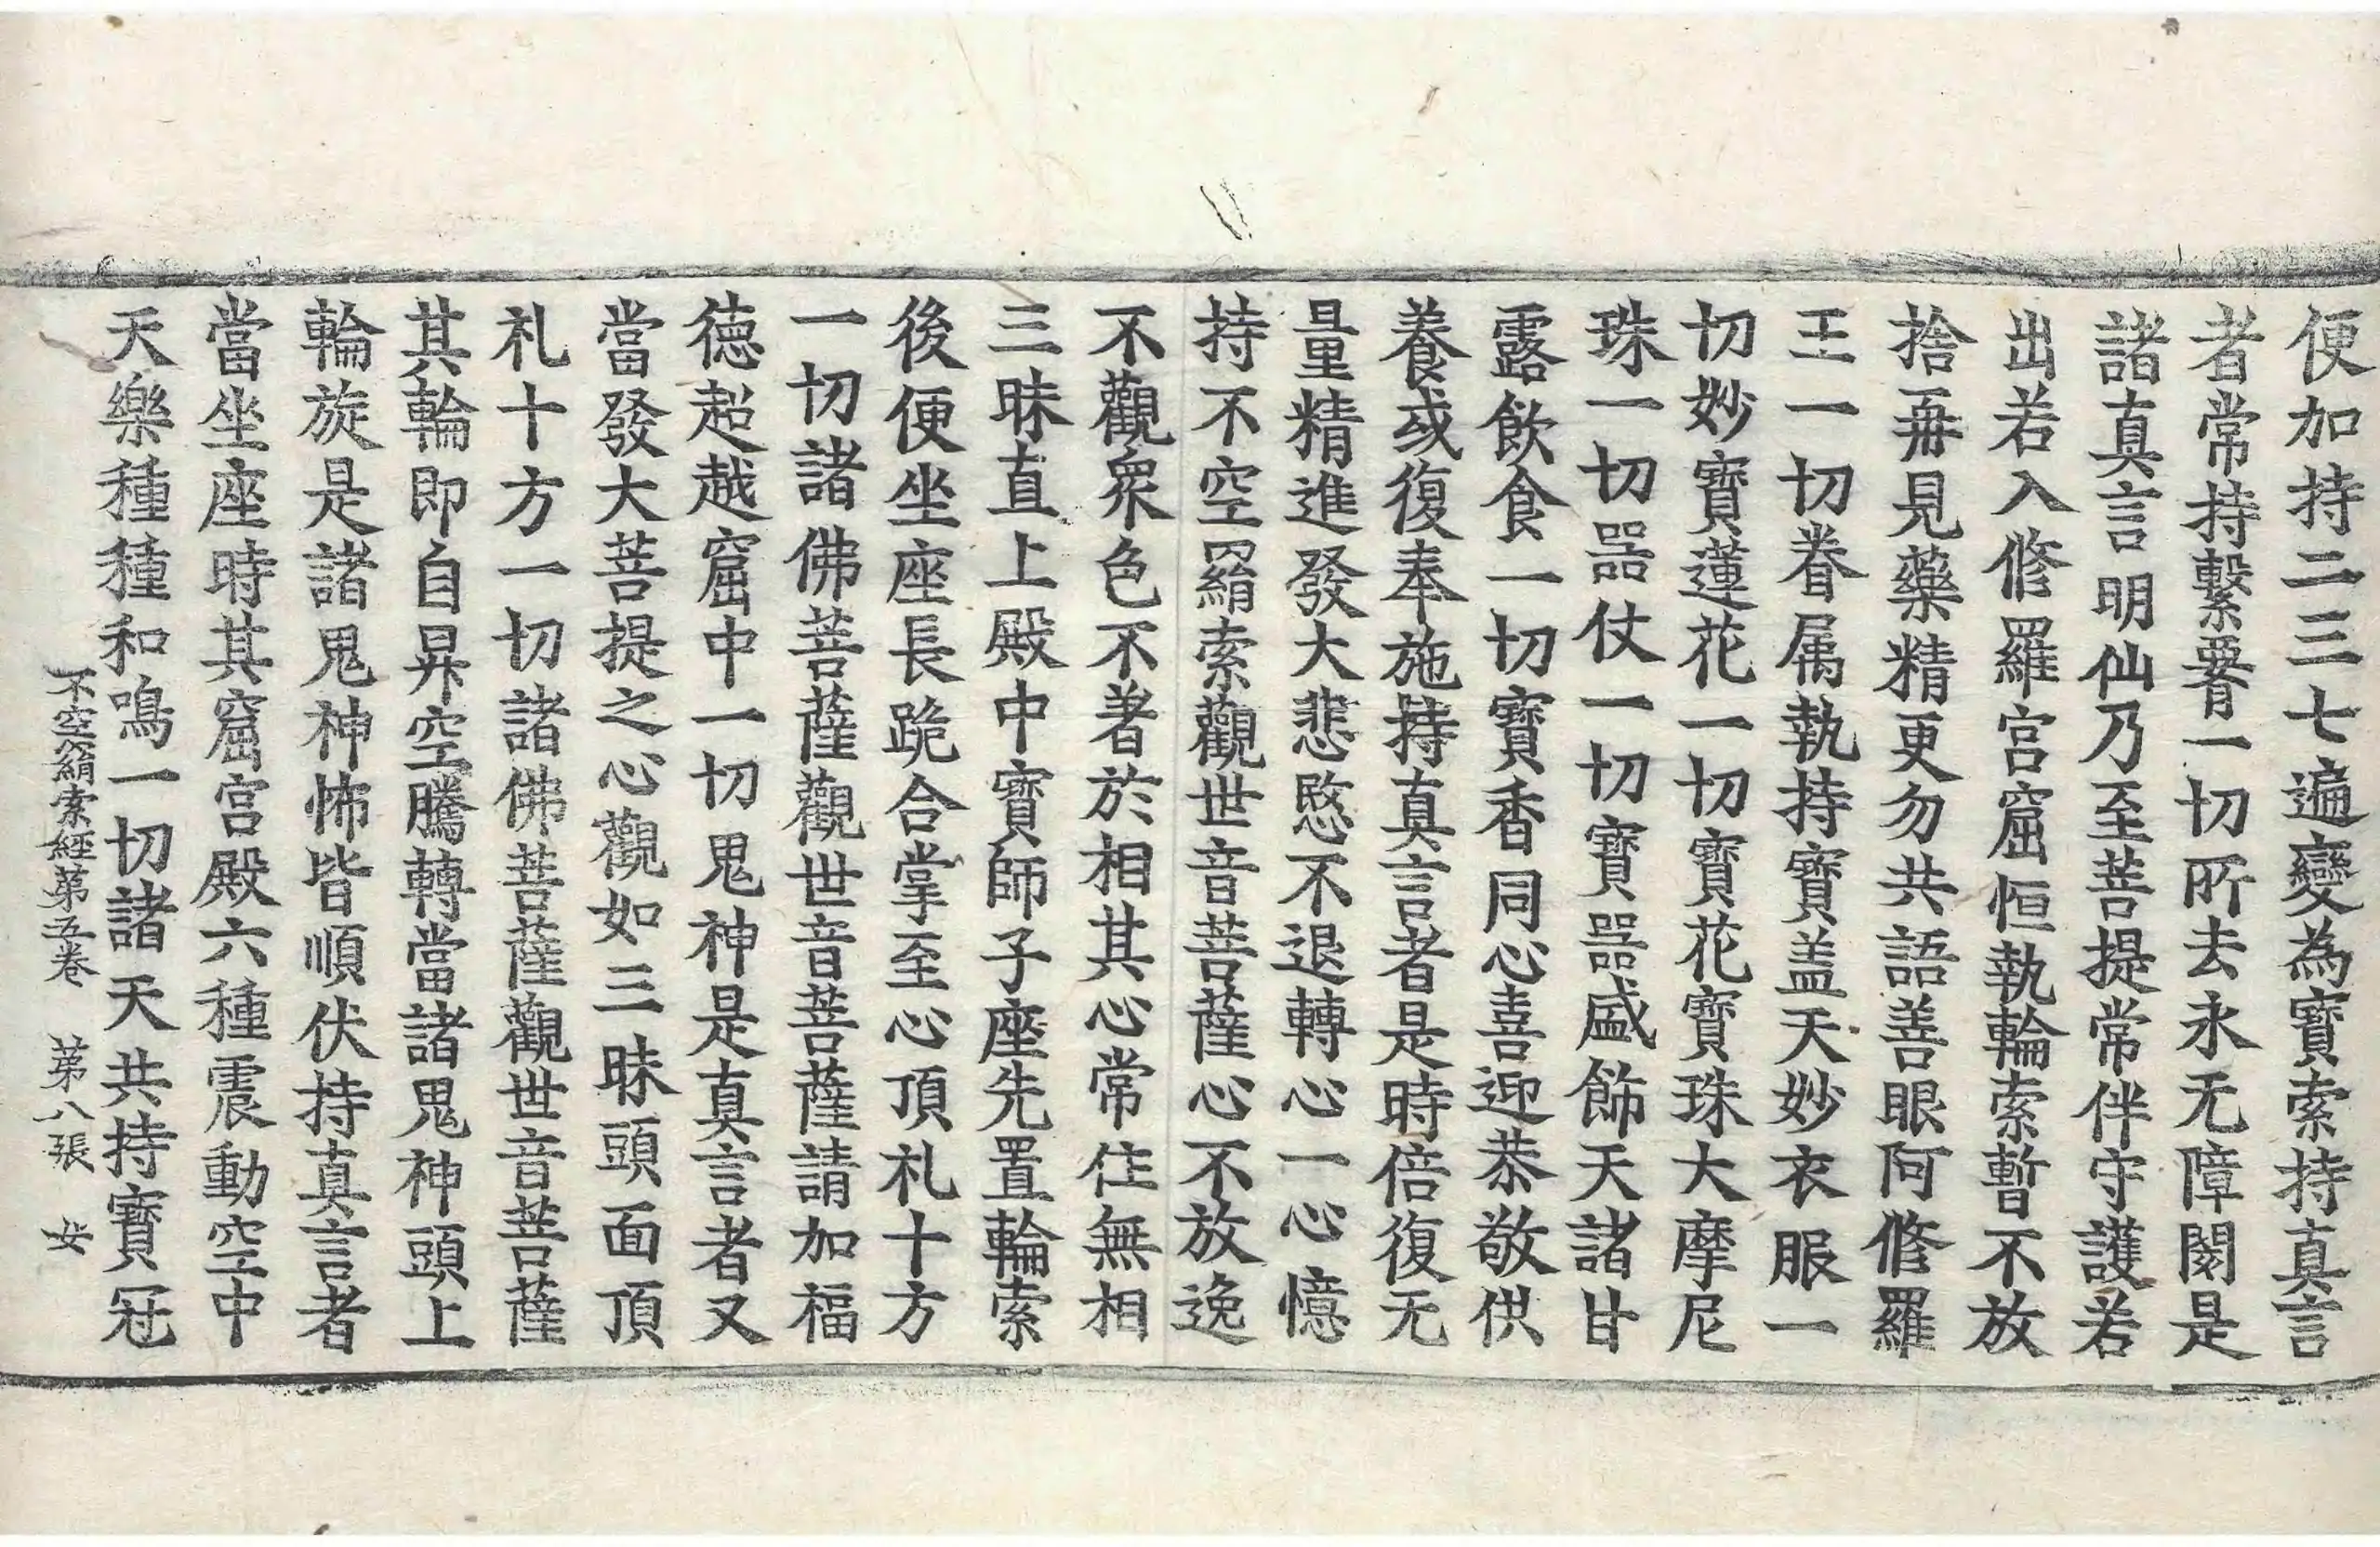 便加持二三七遍變為寶索持真言
者常持繫𦝫一切所去永无障閡是
諸真言明仙乃至菩提常伴守護若
出若入修羅宮窟恒執輪索暫不放
捨再見藥精更勿共語善眼阿修羅
王一切眷属執持寶盖天妙衣服一
切妙寶蓮花一切寶花寶珠大摩尼
珠一切噐仗一切寶噐盛飾天諸甘
露飲食一切寶香同心喜迎恭敬供
養或復奉施持真言者是時倍復无
量精進發大悲愍不退轉心一心憶
持不空羂索觀世音菩薩心不放逸
不觀衆色不著於相其心常住無相
三昧直上殿中寶師子座先置輪索
後便坐座長跪合掌至心頂礼十方
一切諸佛菩薩觀世音菩薩請加福
德超越窟中一切鬼神是真言者又
當發大菩提之心觀如三昧頭面頂
礼十方一切諸佛菩薩觀世音菩薩
其輪即自昇空騰轉當諸鬼神頭上
輪旋是諸鬼神怖皆順伏持真言者
當坐座時其窟宮殿六種震動空中
天樂種種和鳴一切諸天共持寶冠
不空羂索經第五卷 第八張 女